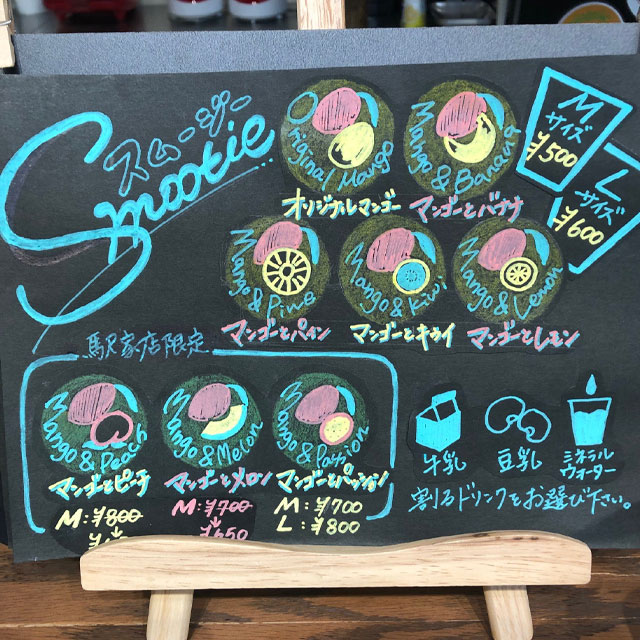 スムージー
Smootie
Original Mango
オリジナルマンゴー
Mango & Banana
マンゴーとバナナ
M
サイズ
¥500
L
サイズ
¥600
Mango & Pine
マンゴーとパイン
Mango & Kiwi
マンゴーとキウイ
Mango & Lemon
マンゴーとレモン
駅家店限定
Mango & Peach
マンゴーとピーチ
M:¥800
Mango & Melon
マンゴーとメロン
M:¥700
¥650
Mango & Passion
マンゴーとパッション
M:¥700
L:¥800
牛乳
豆乳
ミネラル
ウォーター
割るドリンクをお選び下さい。